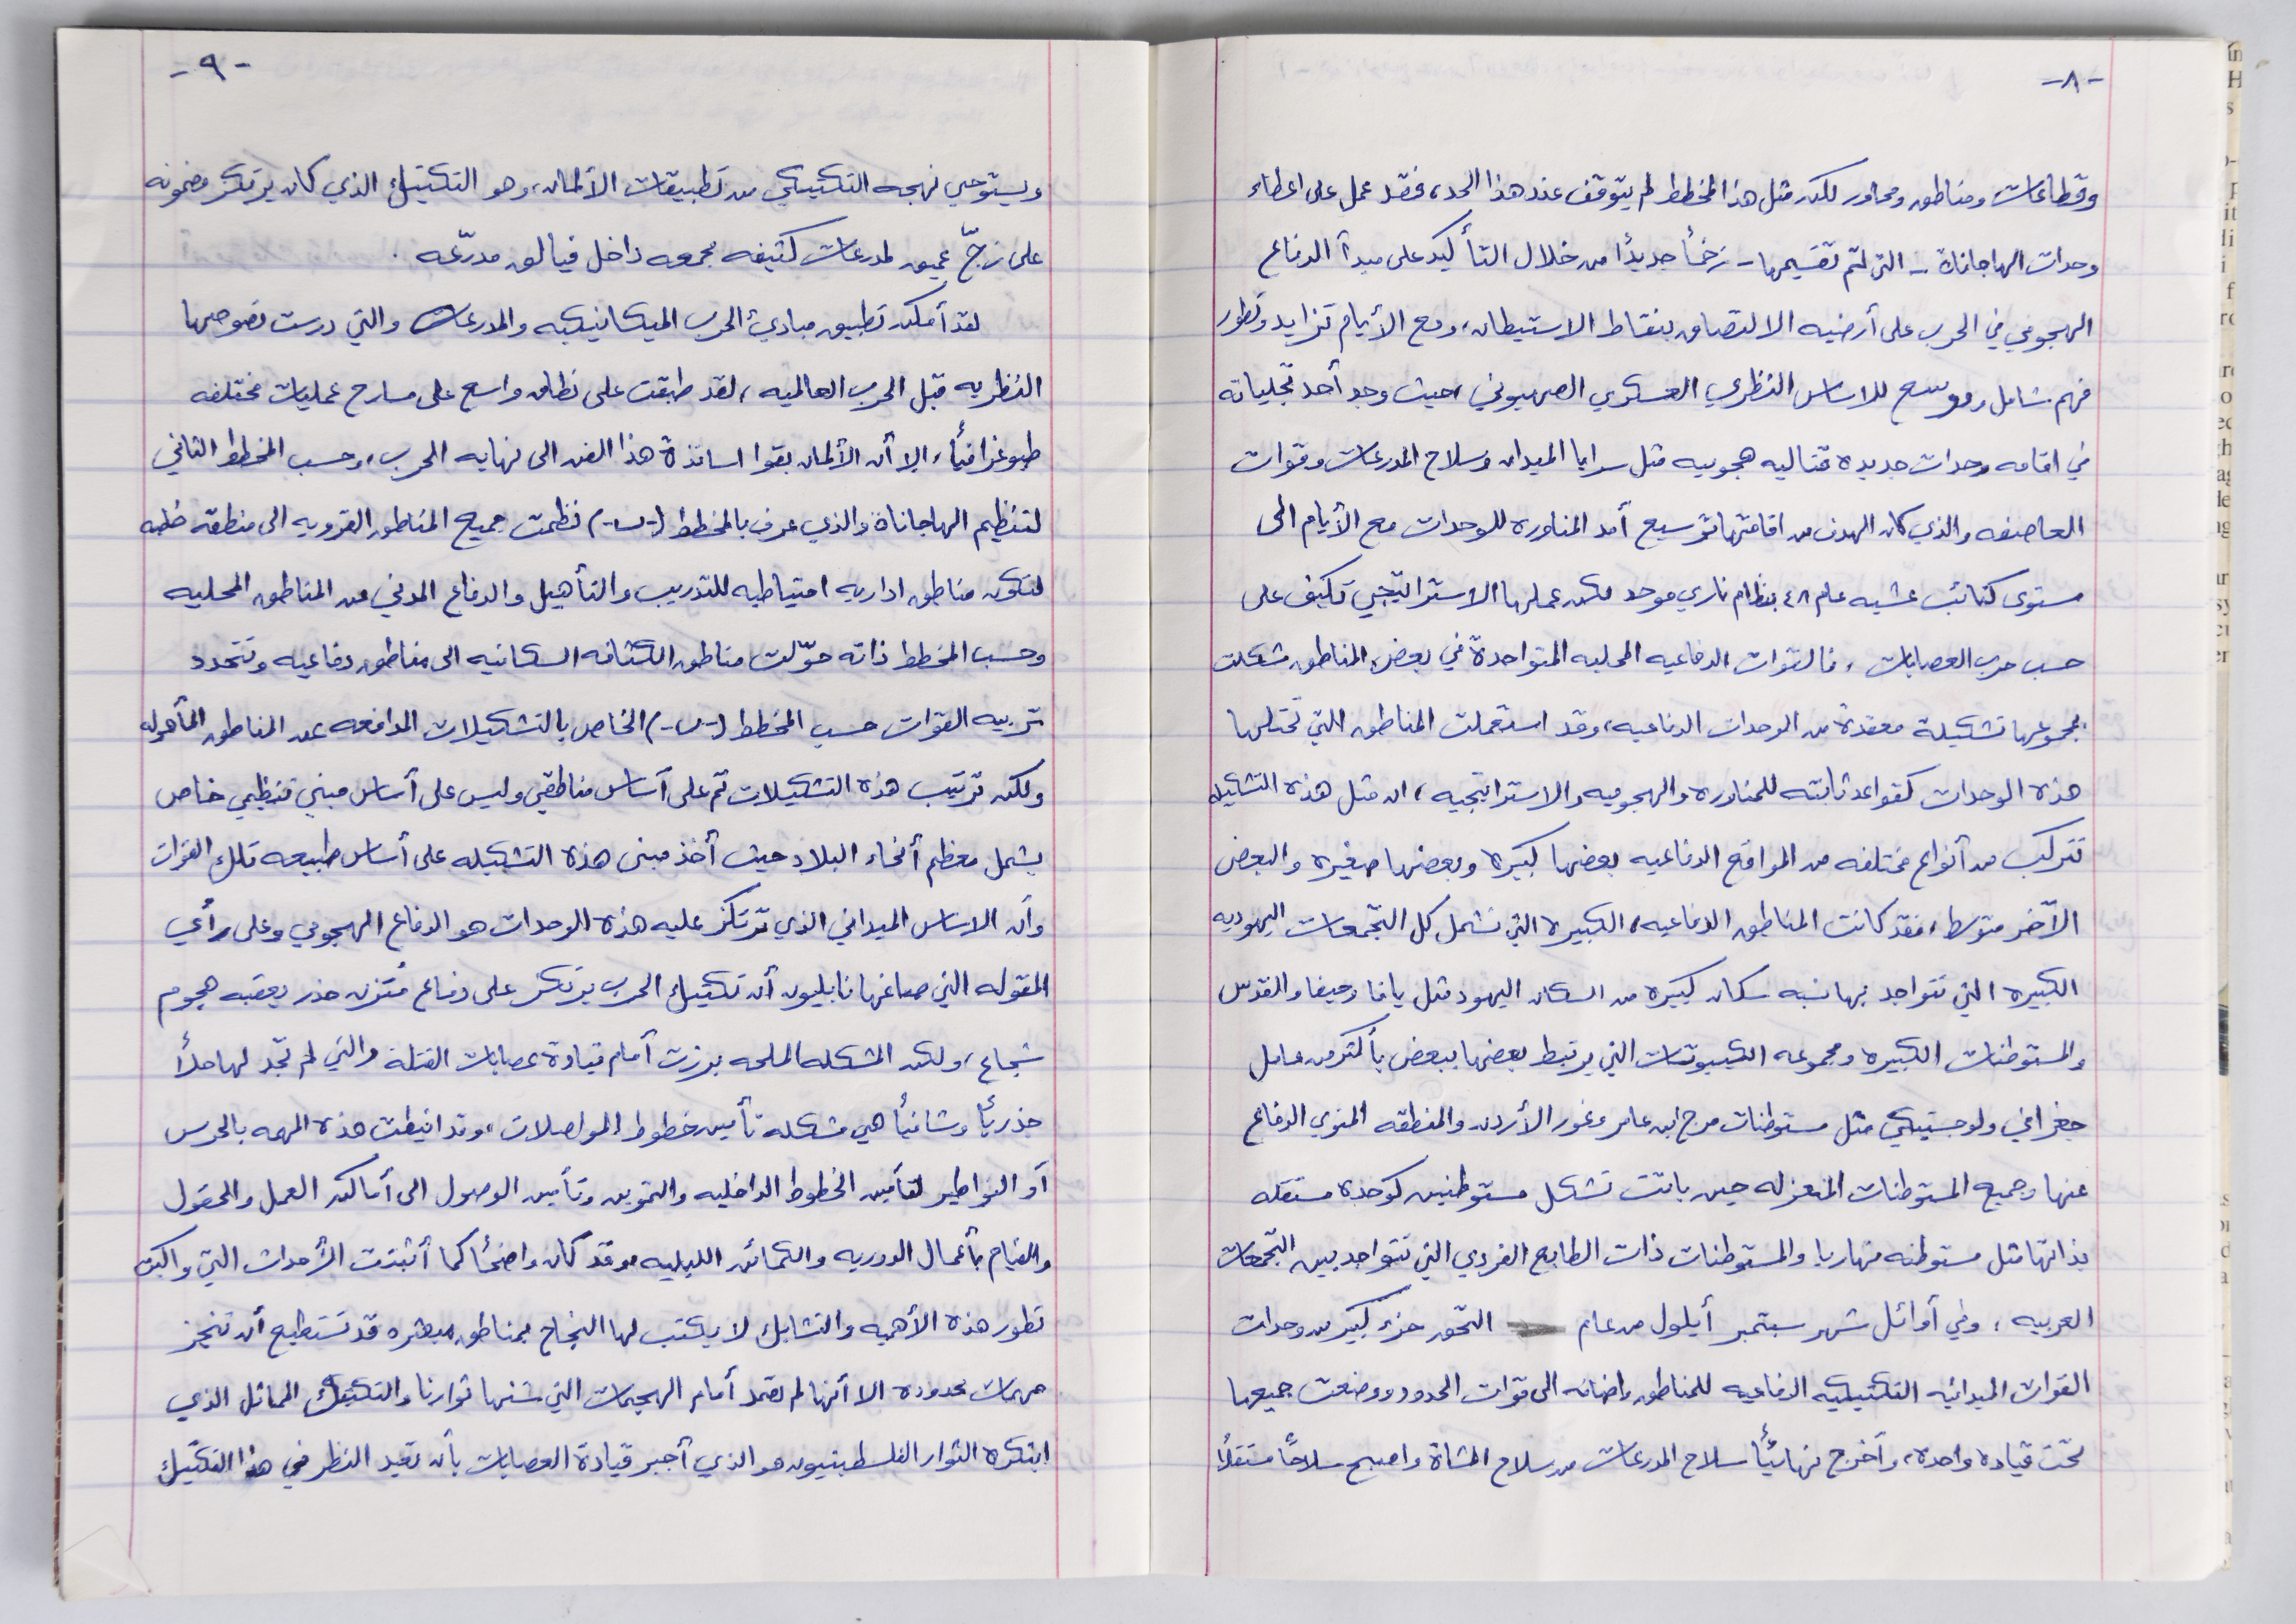 -٨-
وقطاعات ومناطق ومحاور لكن مثل هذا المخطط لم يتوقف عند هذا الحد، فقد عمل على اعطاء
وحدات الهاجاناة - التي تم تقسيمها - زخماً جديداً من خلال التأكيد على مبدأ الدفاع
الهجومي في الحرب على أرضيه الالتصاق بنقاط الاستيطان، ومع الأيام تزايد وتطور
فهم شامل وموسع للاساس النظري العسكري الصهيوني، حيث وجد أحد تجلياته
في اقامه وحدات جديدة قتاليه هجوميه مثل سرايا الميدان وسلاح المدرعات وقوات
العاصفه والذي كان الهدف من اقامتها توسيع أمد المناوره للوحدات مع الأيام الى
مستوى كتائب عشيه عام ٤٨ بنظام ناري موحد لكن عملها الاستراتيجي تكيف على
حسب حرب العصابات، فالقوات الدفاعيه المحليه المتواجدة في بعض المناطق شكلت
بمجموعها تشكيلة معقدة من الوحدات الدفاعيه، وقد استعملت المناطق التي تحتلها
هذه الوحدات كقواعد ثابته للمناوره والهجوميه والاستراتيجيه، ان مثل هذه التشكيله
تتركب من أنواع مختلفه من المواقع الدفاعيه بعضها كبيرة وبعضها صغيره والبعض
الآخر متوسط، فقد كانت المناطق الدفاعيه، الكبيره التي تشمل كل التجمعات اليهوديه
الكبيره التي تتواجد بها نسبه سكان كبيره من السكان اليهود مثل يافا وحيفا والقدس
والمستوطنات الكبيره ومجموعه الكيبوتسات التي يرتبط بعضها ببعض بأكثر من عامل
جغرافي ولوجستيكي مثل مستوطنات مرج ابن عامر وغور الأردن والمنطقه المنوي الدفاع
عنها وجميع المستوطنات المنعزله حين باتت تشكل مستوطنين كوحدة مستقله
بذاتها مثل مستوطنه نهاريا والمستوطنات ذات الطابع الفردي التي تتواجد بين التجمعات
العربيه، وفي أوائل شهر سبتمبر أيلول من عام التحق جزء كبير من وحدات
القوات الميدانيه التكتيكيه الدفاعيه للمناطق واضافه الى قوات الحدود ووضعت جميعها
تحت قيادة واحدة، وأخرج نهائياً سلاح المدرعات من سلاح المشاة واصبح سلاحاً مستقلاً
-٩-
ويستوحي نهجه التكتيكي من تطبيقات الألمان، وهو التكتيك الذي كان يرتكز مضمونه
على زجّ عميق لمدرعات كثيفه مجمعه داخل فيالق مدرّعه.
لقد أمكن تطبيق مبادئ الحرب الميكانيكيه والمدرعات والتي درست نصوصها
النظريه قبل الحرب العالميه، لقد طبقت على نطاق واسع على مسارح عمليات مختلفه
طبوغرافياً، إلا أن الألمان بقوا اساتذة هذا الفن الى نهايه الحرب، وحسب المخطط الثاني
لتنظيم الهاجاناة والذي عرف بالمخطط (-ب-) نظمت جميع المناطق القرويه الى منطقة خلفيه
لتكون مناطق اداريه احتياطيه للتدريب والتأهيل والدفاع المدني من المناطق المحليه
وحسب المخطط ذاته حوّلت مناطق الكثافه السكانيه الى مناطق دفاعيه وتتحدد
تربيه القوات حسب المخطط (-ب-) الخاص بالتشكيلات المدافعه عن المناطق المأهوله
ولكن ترتيب هذه التشكيلات تم على أساس مناطقي وليس على أساس مبني تنظيمي خاص
يشمل معظم أنحاء البلاد حيث أخذ مبنى هذه التشكيله على أساس طبيعه تلك القوات
وأن الاساس الميداني الذي ترتكز عليه هذه الوحدات هو الدفاع الهجومي وعلى رأي
المقوله التي صاغها نابليون أن تكتيك الحرب يرتكز على دفاع مُتزن حذر يعقبه هجوم
شجاع، ولكن المشكله الملحه برزت أمام قيادة عصابات القتلة والتي لم تجد لها حلاً
جذرياً وشافياً هي مشكله تأمين خطوط المواصلات، وقد انيطت هذه المهمه بالحرس
أو النواطير لتأمين الخطوط الداخليه والتموين وتأمين الوصول الى أماكن العمل والحقول
والقيام بأعمال الدوريه والكمائن الليليه وقد كان واضحاً كما أثبتت الأحداث التي واكبت
تطور هذه الأهميه والتشابك لا يكتب لها النجاح بمناطق مبعثره قد تستطيع أن تنجز
مهمات محدوده الا أنها لم تصمد أمام الهجمات التي شنها ثوارنا والتكتيك المماثل الذي
ابتكره الثوار الفلسطينيون هو الذي أجبر قيادة العصابات بأن تعيد النظر في هذا التكتيك